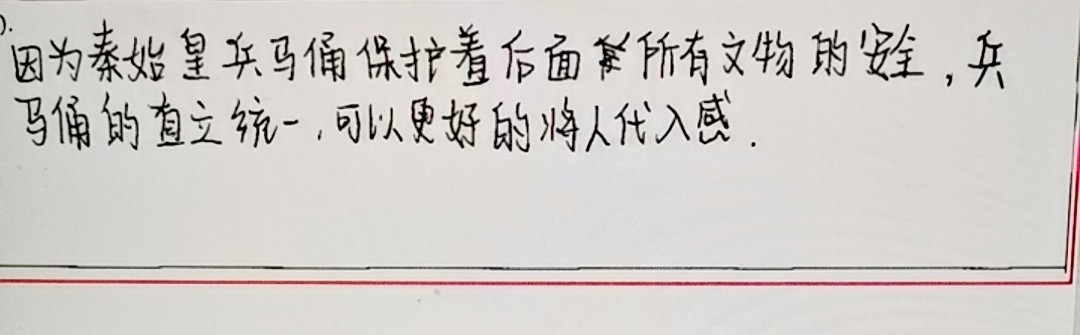 ).
因为秦始皇兵马俑保护着后面所有文物的安全,兵
马俑的直立统一,可以更好的将人代入感.